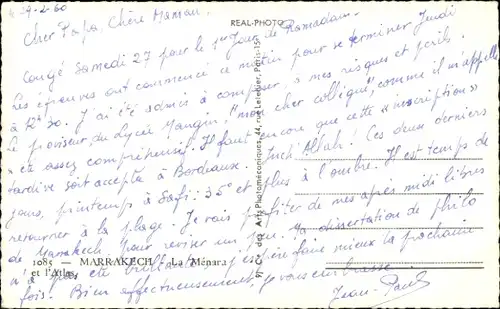 29-2-60
Cher Papa, Chère Maman,
Congé Samedi 27 pour le 1er Jour de Ramadam.
Les épreuves ont commencé ce matin pour se terminer Jeudi
à 12h30. J'ai été admis à composer "à mes risques et périls"
Le proviseur du Lycée Mangin, "mon cher collègue", comme il m'appelle
est assez compréhensif. Il faut encore que cette "inscription"
tardive soit acceptée à Bordeaux. Inch'Allah! Ces deux derniers
jours, printemps à Safi: 35° et plus à l'ombre. Il est temps de
retourner à la plage. Je vais profiter de mes après midi libres
de Marrakech pour reviser un peu. Ma dissertation de philo
n'a pas été brillante. J'espère faire mieux la prochaine
fois. Bien affectueusement, je vous embrasse.
Jean-Paul
REAL-PHOTO
Cie des Arts Photomécaniques, 44, rue Letellier, Paris-15e
1085 — MARRAKECH — La Ménara
et l'Atlas